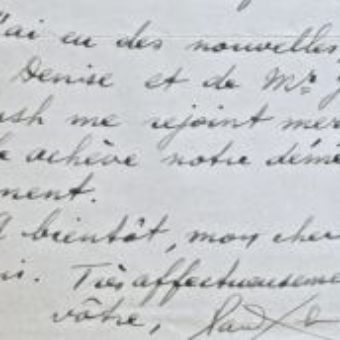 J'ai eu des nouvelles
Denise et de Mr
me rejoint mer
achève notre démé
ment.
A bientôt, mon cher
Très affectueuseme
vôtre,